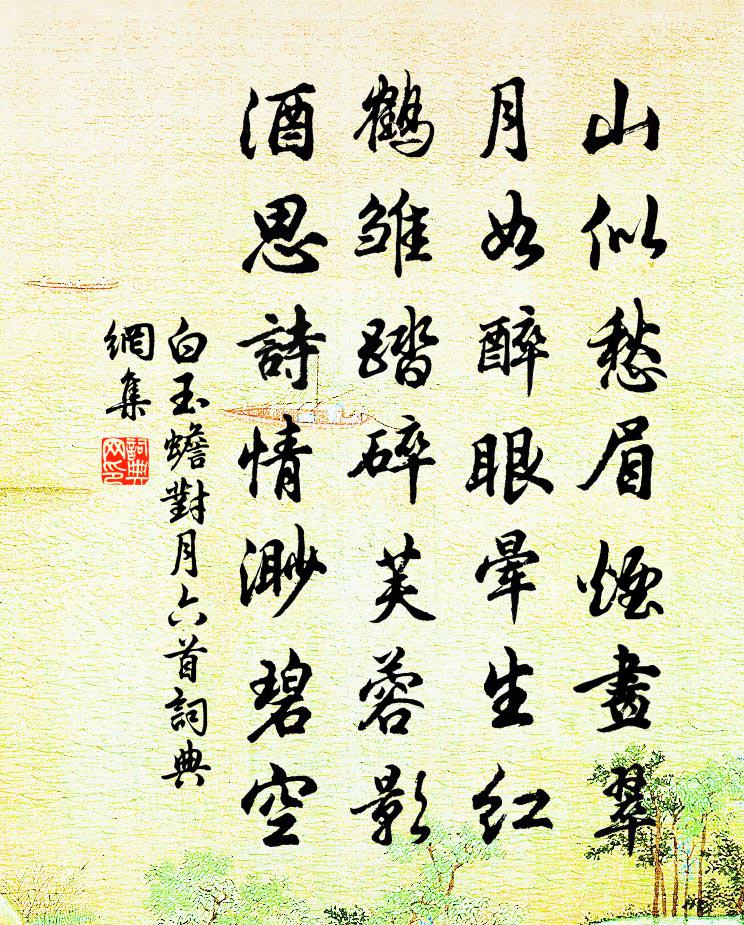 山似愁眉煙畫翠
月如醉眼暈生紅
鶴雏踏碎芙蓉影
酒思詩情渺碧空
白玉蟾對月六首詞典
網集
詞典
网印